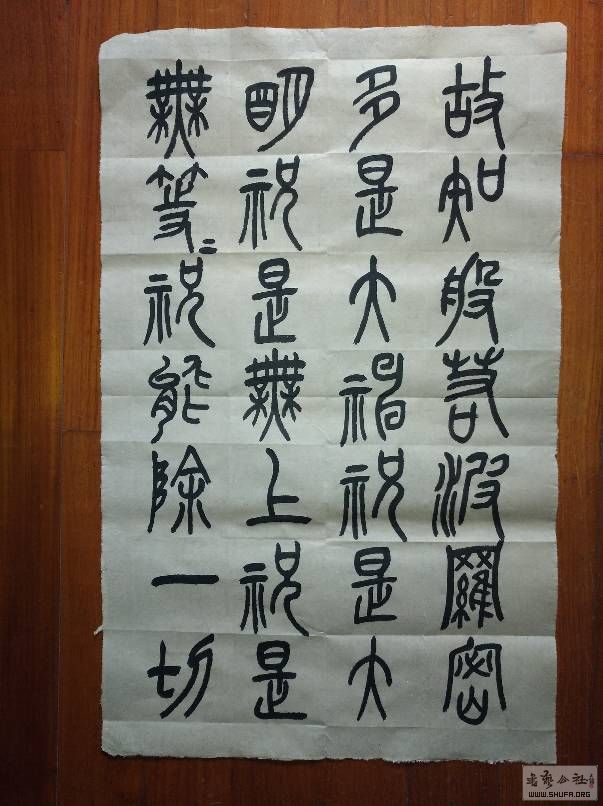 故知般若波羅密
多是大神祝是大
明祝是無上祝是
無等〻祝能除一切
书艺公社
WWW.SHUFA.ORG